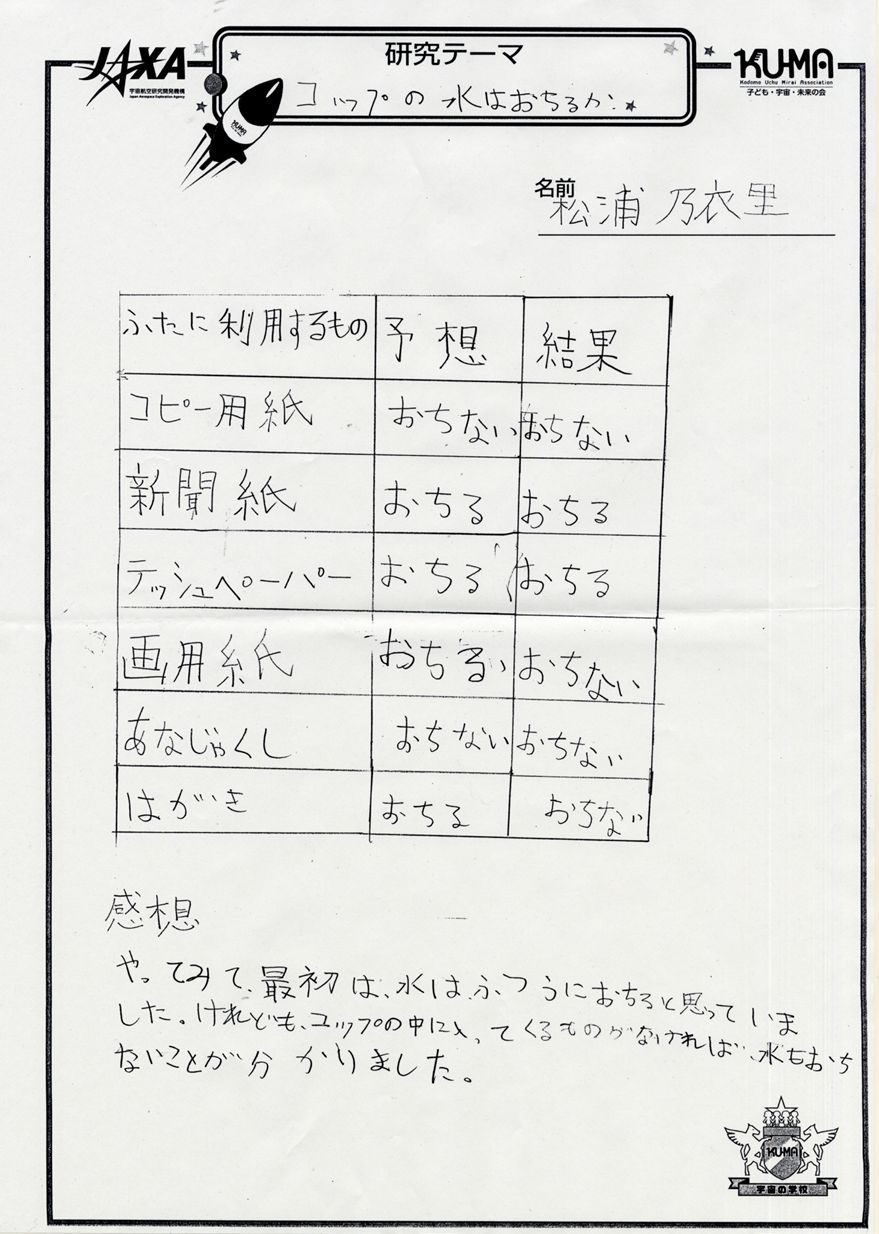 JAXA
宇宙航空研究開発機構
Japan Aerospace Exploration Agency
研究テーマ
コップの水はおちるか
KU-MA
Kodomo Uchu Mirai Association
子ども・宇宙・未来の会
KU-MA
名前 松浦 乃衣里
ふたに利用するもの 予想 結果
コピー用紙 おちない おちない
新聞紙 おちる おちる
テッシュペーパー おちる おちる
画用紙 おちる おちない
あなじゃくし おちない おちない
はがき おちる おちない
感想
やってみて、最初は、水は、ふつうにおちると思っていま
した。けれども、コップの中に入ってくるものがなければ、水もおち
ないことが分かりました。
KU-MA
宇宙の学校